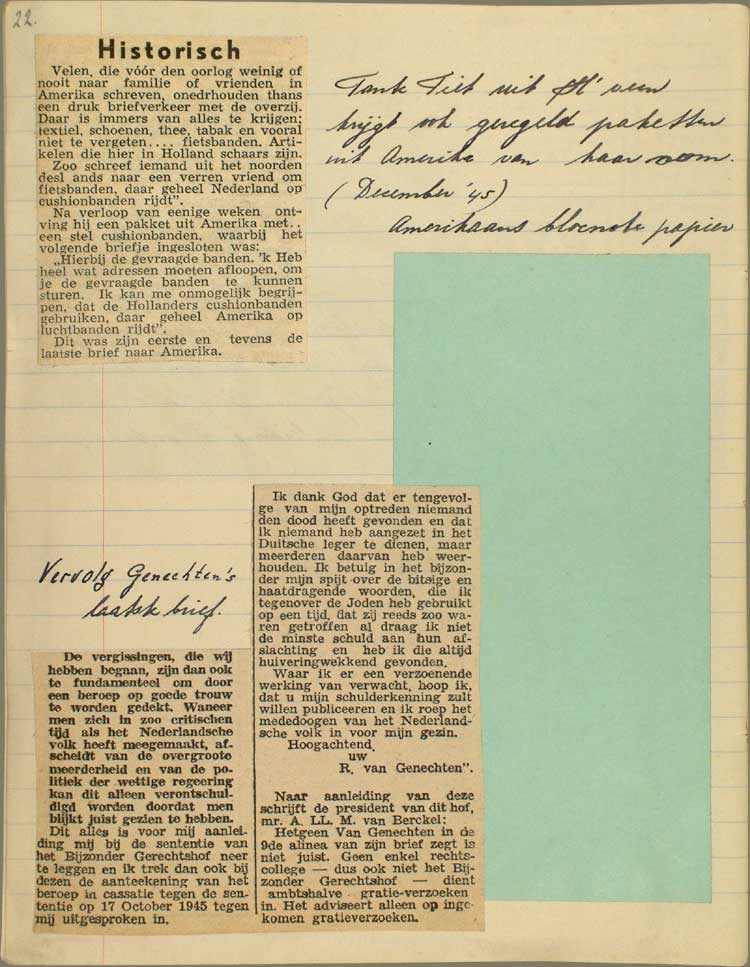 22.
Historisch
Velen, die vóór den oorlog weinig of
nooit naar familie of vrienden in
Amerika schreven, onedrhouden thans
een druk briefverkeer met de overzij.
Daar is immers van alles te krijgen;
textiel, schoenen, thee, tabak en vooral
niet te vergeten.... fietsbanden. Arti-
kelen die hier in Holland schaars zijn.
Zoo schreef iemand uit het noorden
desl ands naar een verren vriend om
fietsbanden, daar geheel Nederland op
cushionbanden rijdt”.
Na verloop van eenige weken ont-
ving hij een pakket uit Amerika met..
een stel cushionbanden, waarbij het
volgende briefje ingesloten was:
„Hierbij de gevraagde banden. 'k Heb
heel wat adressen moeten afloopen, om
je de gevraagde banden te kunnen
sturen. Ik kan me onmogelijk begrij-
pen, dat de Hollanders cushionbanden
gebruiken, daar geheel Amerika op
luchtbanden rijdt”.
Dit was zijn eerste en tevens de
laatste brief naar Amerika.
Tante Tiet uit H'veen
krijgt ook geregeld paketten
uit Amerika van haar oom.
(December '45)
Amerikaans blocnote papier
Vervolg Genechten's
laatste brief.
De vergissingen, die wij
hebben begaan, zijn dan ook
te fundamenteel om door
een beroep op goede trouw
te worden gedekt. Waneer
men zich in zoo critischen
tijd als het Nederlandsche
volk heeft meegemaakt, af-
scheidt van de overgroote
meerderheid en van de po-
litiek der wettige regeering
kan dit alleen verontschul-
digd worden doordat men
blijkt juist gezien te hebben.
Dit alles is voor mij aanlei-
ding mij bij de sententie van
het Bijzonder Gerechtshof neer
te leggen en ik trek dan ook bij
dezen de aanteekening van het
beroep in cassatie tegen de sen-
tentie op 17 October 1945 tegen
mij uitgesproken in.
Ik dank God dat er tengevol-
ge van mijn optreden niemand
den dood heeft gevonden en dat
ik niemand heb aangezet in het
Duitsche leger te dienen, maar
meerderen daarvan heb weer-
houden. Ik betuig in het bijzon-
der mijn spijt over de bitsige en
haatdragende woorden, die ik
tegenover de Joden heb gebruikt
op een tijd, dat zij reeds zoo wa-
ren getroffen al draag ik niet
de minste schuld aan hun af-
slachting en heb ik die altijd
huiveringwekkend gevonden.
Waar ik er een verzoenende
werking van verwacht, hoop ik,
dat u mijn schulderkenning zult
willen publiceeren en ik roep het
mededoogen van het Nederland-
sche volk in voor mijn gezin.
Hoogachtend,
uw
R. van Genechten”.
Naar aanleiding van deze
schrijft de president van dit hof,
mr. A. LL. M. van Berckel:
Hetgeen Van Genechten in de
9de alinea van zijn brief zegt is
niet juist. Geen enkel rechts-
college — dus ook niet het Bij-
zonder Gerechtshof — dient
ambtshalve gratie-verzoeken
in. Het adviseert alleen op inge-
komen gratieverzoeken.